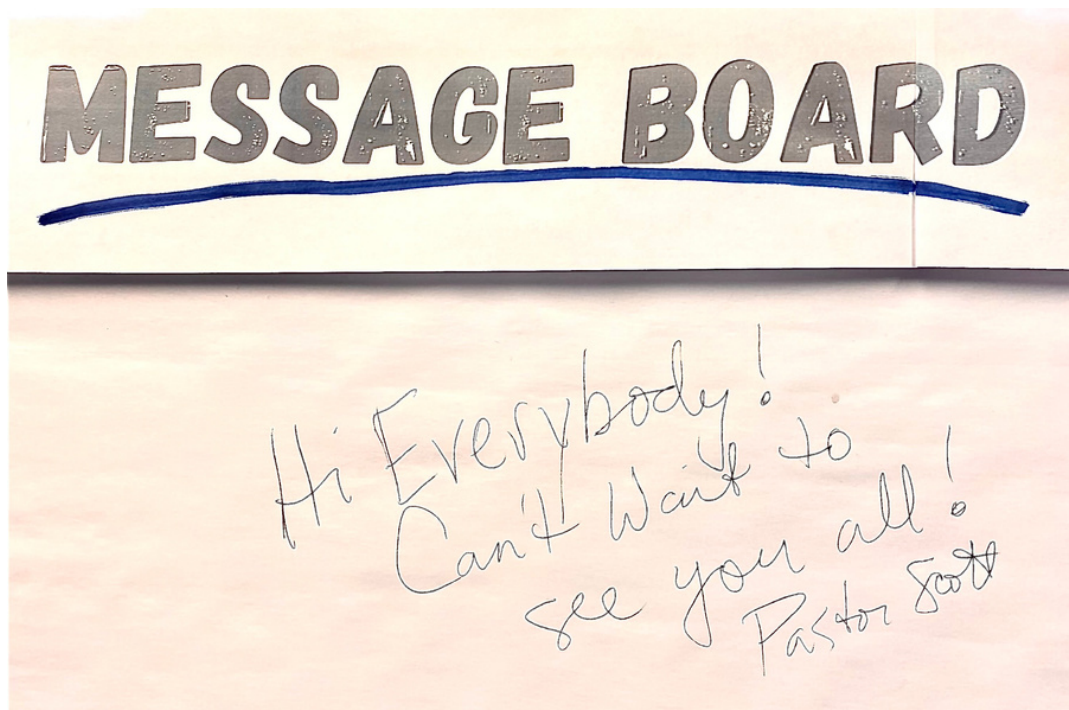 MESSAGE BOARD
Hi Everybody!
Can't Wait to
see you all!
Pastor Scott